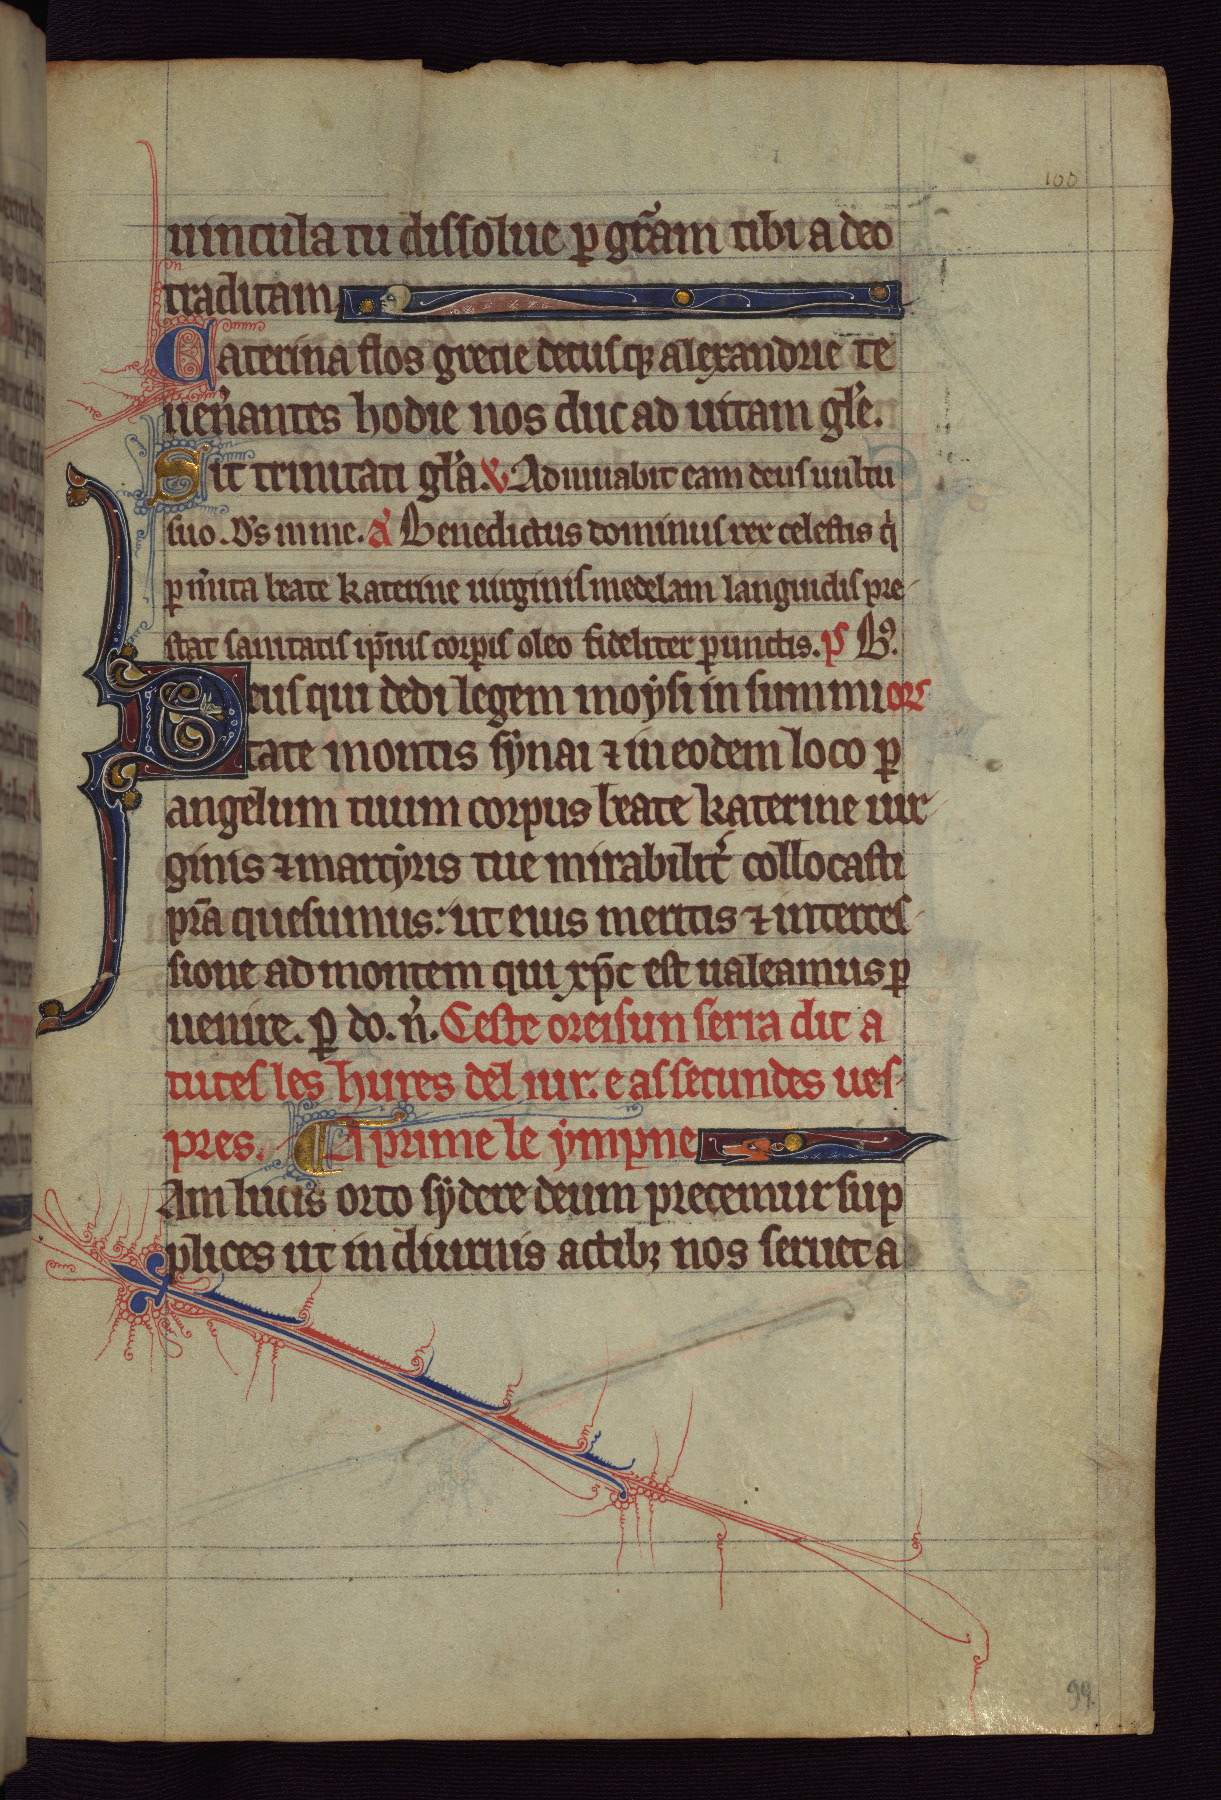 100
uincula tu dissolue p gr̃am tibi a deo
traditam
Caterina flos grecie decusq; alexandrie te
uen̾antes hodie nos duc ad uitam gl̾e.
Sit trinitati gl̾a. V Adiuuabit eam deus uultu
suo. Ds̾ in me. a̾ Benedictus dominus rex celestis q̾
p m̾ita beate katerine uirginis medelam languidis pre-
stat sanitatis ip̃ius corp̾is oleo fideliter p̾unctis. ps B⁹.
Deus qui dedi legem moysi in summi or̃
tate montis synai ⁊ in eodem loco p
angelum tuum corpus beate katerine uir-
ginis ⁊ martyris tue mirabilit̾ collocasti
pr̃a quesumus: ut eius meritis ⁊ interces-
sione ad montem qui xp̃c est ualeamus p
uenire. p do. n̾. Ceste oreisun serra dit a
tutes les hures del iur. e as secundes ues-
pres. A prime le ympne
Iam lucis orto sydere deum precemur sup
plices ut in diurnis actib; nos seruet a
99.